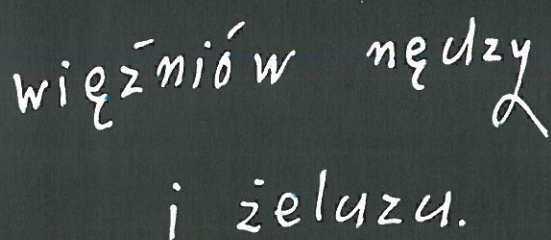 więźniów nędzy
i żelaza.